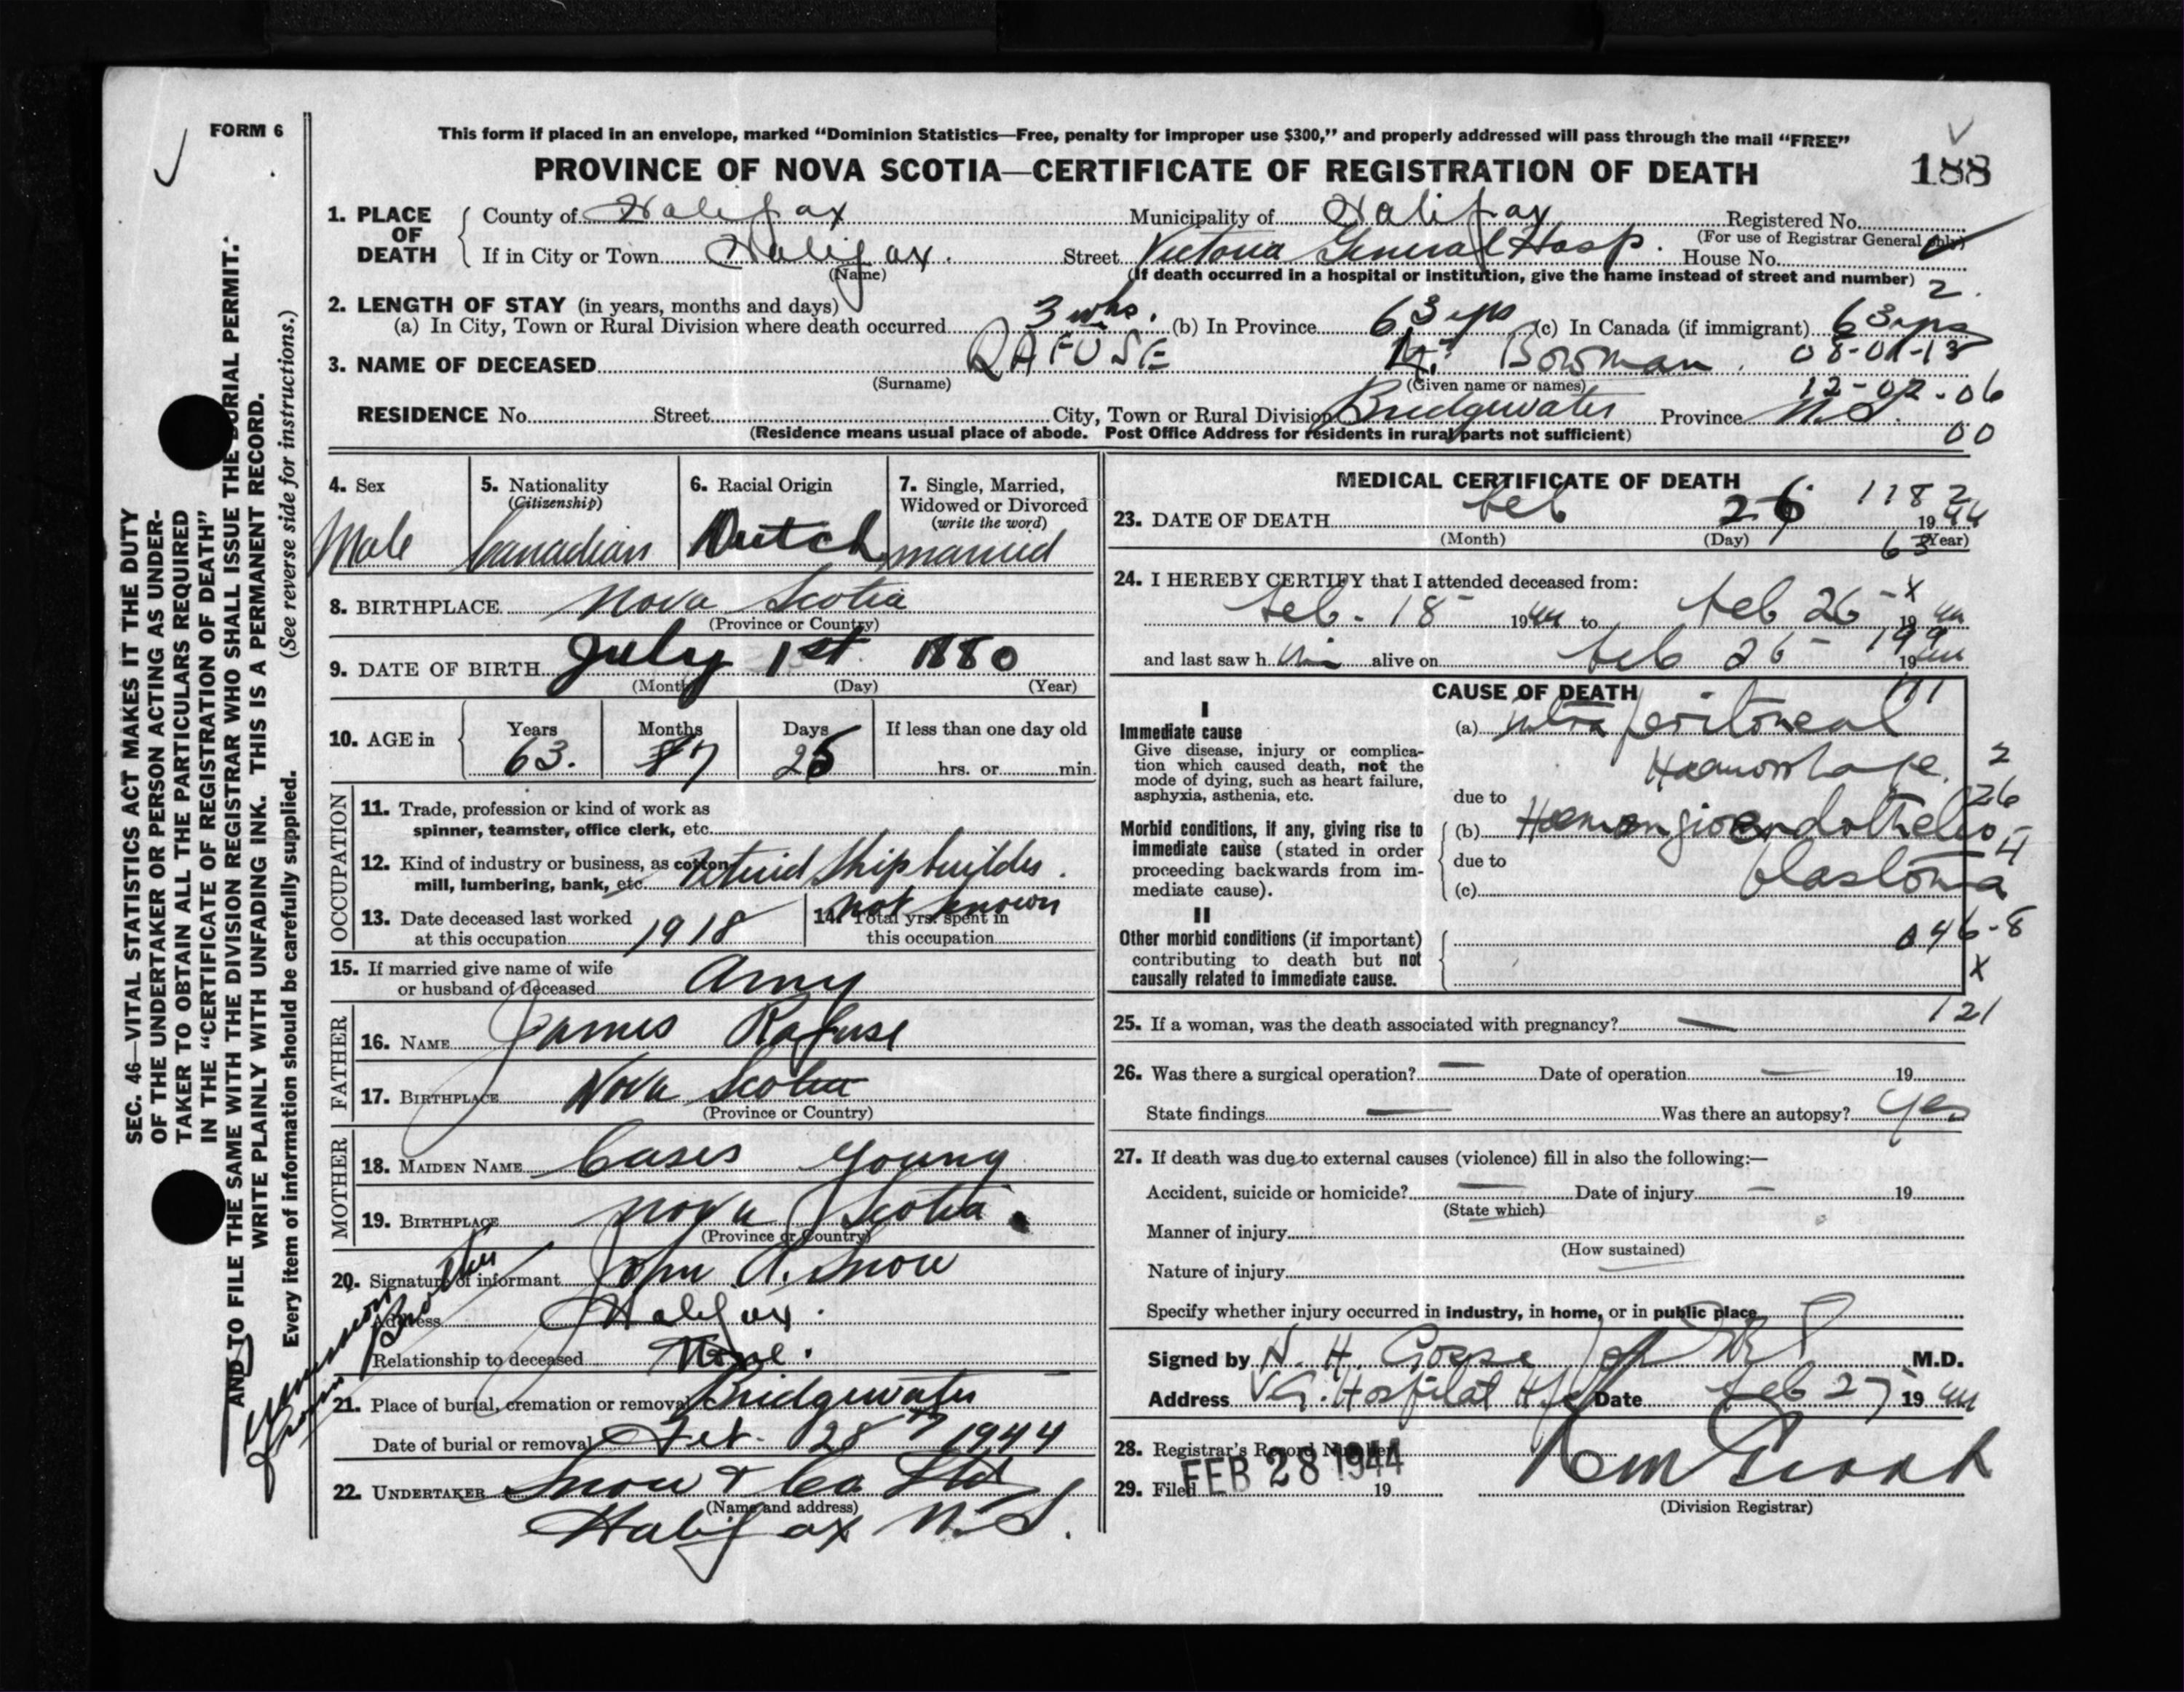 FORM 6
This form if placed in an envelope, marked “Dominion Statistics—Free, penalty for improper use $300,” and properly addressed will pass through the mail “FREE”
PROVINCE OF NOVA SCOTIA—CERTIFICATE OF REGISTRATION OF DEATH
188
1. PLACE OF DEATH
County of Halifax Municipality of Halifax Registered No.
(For use of Registrar General only)
If in City or Town Halifax. Street Victoria General Hosp. House No.
(Name)
(If death occurred in a hospital or institution, give the name instead of street and number)
2.
2. LENGTH OF STAY (in years, months and days)
(a) In City, Town or Rural Division where death occurred 3 wks. (b) In Province 63 yrs (c) In Canada (if immigrant) 63 yrs
3. NAME OF DECEASED RAFUSE Bowman
(Surname) (Given name or names)
12-02-06
RESIDENCE No. Street City, Town or Rural Division Bridgewater Province N.S.
(Residence means usual place of abode. Post Office Address for residents in rural parts not sufficient)
00
4. Sex
Male
5. Nationality
(Citizenship)
Canadian
6. Racial Origin
Dutch
7. Single, Married, Widowed or Divorced
(write the word)
married
8. BIRTHPLACE Nova Scotia
(Province or Country)
9. DATE OF BIRTH July 1st 1880
(Month) (Day) (Year)
10. AGE in
Years 63.
Months 7
Days 25
If less than one day old
hrs. or min.
OCCUPATION
11. Trade, profession or kind of work as
spinner, teamster, office clerk, etc.
12. Kind of industry or business, as cotton
mill, lumbering, bank, etc. retired Shipbuilder.
13. Date deceased last worked
at this occupation 1918
14. Total yrs. spent in
this occupation not known
15. If married give name of wife
or husband of deceased Amy
FATHER
16. NAME James Rafuse
17. BIRTHPLACE Nova Scotia
(Province or Country)
MOTHER
18. MAIDEN NAME Young
19. BIRTHPLACE Nova Scotia
(Province or Country)
20. Signature of informant John A. Snow
Address Halifax.
Relationship to deceased None.
21. Place of burial, cremation or removal Bridgewater
Date of burial or removal Feb. 28 1944
22. UNDERTAKER Snow & Co Ltd
(Name and address)
Halifax N.S.
MEDICAL CERTIFICATE OF DEATH
1182
23. DATE OF DEATH Feb 26 1944
(Month) (Day) (Year)
63
24. I HEREBY CERTIFY that I attended deceased from:
Feb. 18 1944 to Feb 26 1944
and last saw him alive on Feb 26 1944
CAUSE OF DEATH
I
Immediate cause
Give disease, injury or complica-
tion which caused death, not the
mode of dying, such as heart failure,
asphyxia, asthenia, etc.
(a) Intra peritoneal
Haemorrhage.
due to
Morbid conditions, if any, giving rise to
immediate cause (stated in order
proceeding backwards from im-
mediate cause).
(b) Haemangioendothelio
due to
(c) blastoma
II
Other morbid conditions (if important)
contributing to death but not
causally related to immediate cause.
046-8
X
121
25. If a woman, was the death associated with pregnancy? —
26. Was there a surgical operation? — Date of operation — 19
State findings — Was there an autopsy? Yes
27. If death was due to external causes (violence) fill in also the following:—
Accident, suicide or homicide? — Date of injury — 19
(State which)
Manner of injury
(How sustained)
Nature of injury
Specify whether injury occurred in industry, in home, or in public place
Signed by N. H. Gosse M.D.
Address V.G. Hospital Date Feb 27 1944
28. Registrar's Record Number
29. Filed FEB 28 1944 19
(Division Registrar)
SEC. 46—VITAL STATISTICS ACT MAKES IT THE DUTY
OF THE UNDERTAKER OR PERSON ACTING AS UNDER-
TAKER TO OBTAIN ALL THE PARTICULARS REQUIRED
IN THE “CERTIFICATE OF REGISTRATION OF DEATH”
AND TO FILE THE SAME WITH THE DIVISION REGISTRAR WHO SHALL ISSUE THE BURIAL PERMIT.
WRITE PLAINLY WITH UNFADING INK. THIS IS A PERMANENT RECORD.
Every item of information should be carefully supplied. (See reverse side for instructions.)